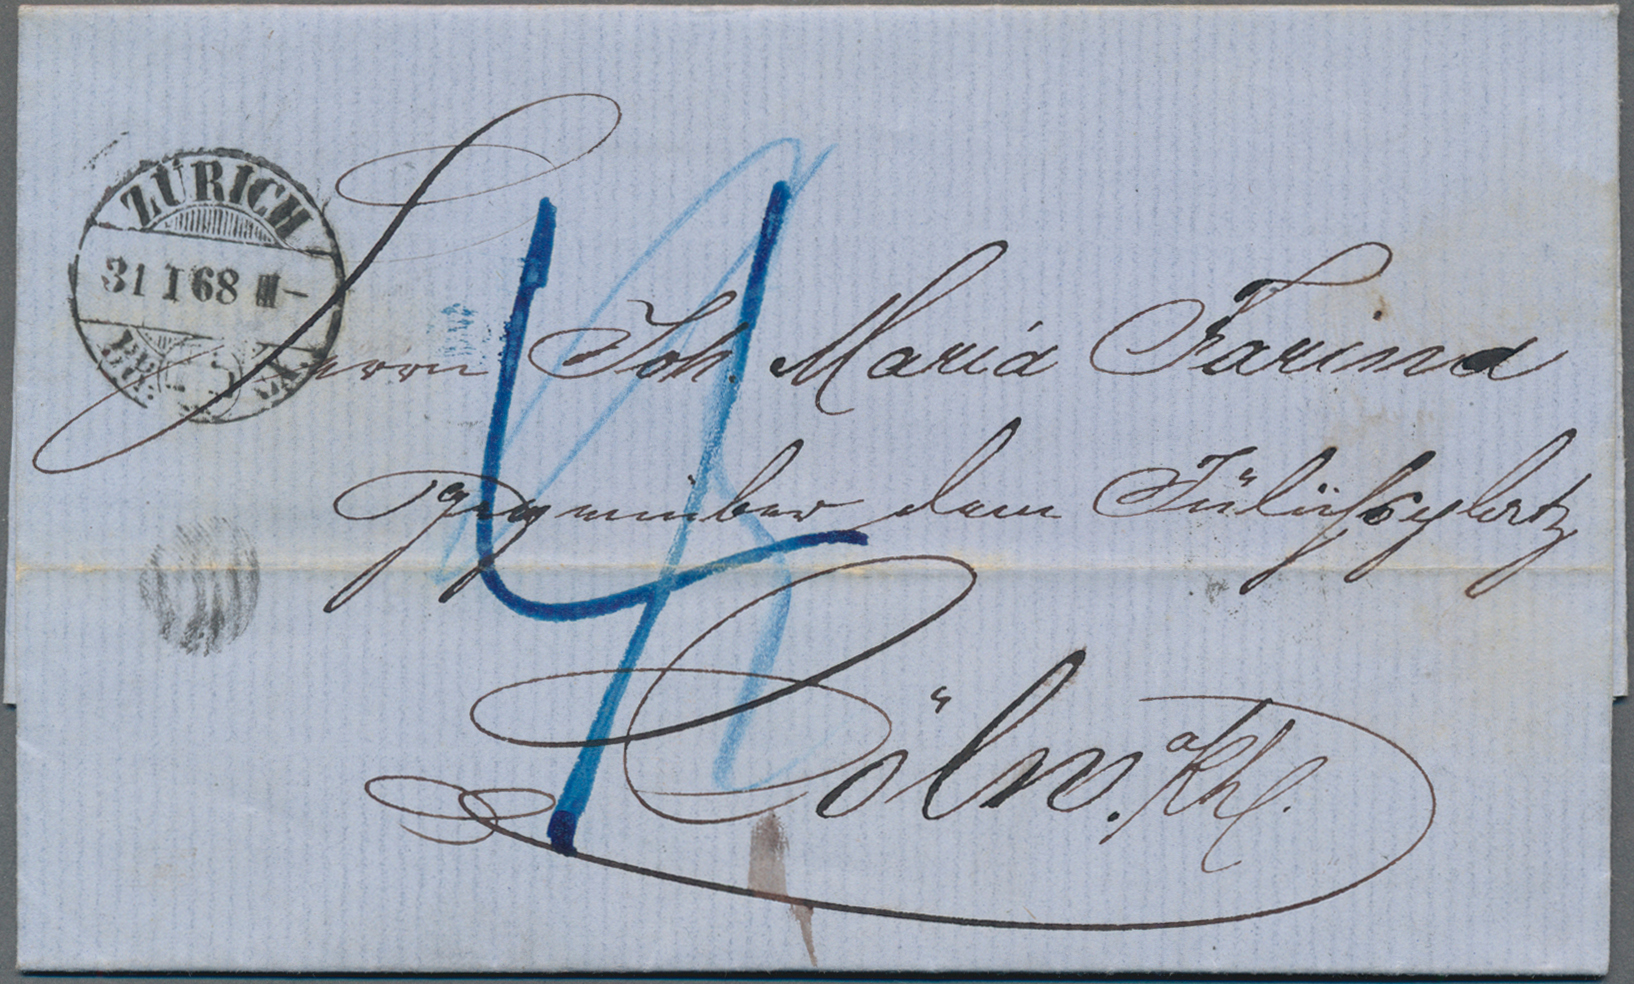 ZÜRICH
31 I 68 III-
Herrn Joh. Maria Farina
gegenüber dem Jülichsplatz
Cöln. a/Rh.
4